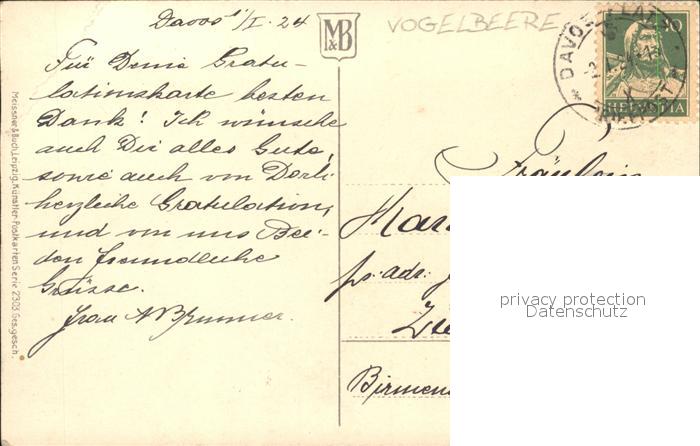 Davos 1/I. 24
Für Deine Gratu-
lationskarte besten
Dank! Ich wünsche
auch Dir alles Gute,
sowie auch von Dorli
herzliche Gratulation,
und von uns Bei-
den freundliche
Grüsse.
Frau A Brunner.
Meissner & Buch, Leipzig, Künstler-Postkarten Serie 2303 Ges. gesch.
M&B
VOGELBEERE
DAVOS-PLATZ
10
HELVETIA
Fräulein
Mar
pr. adr.
Zü
Birmen
privacy protection
Datenschutz